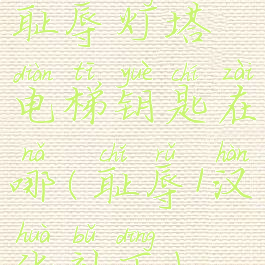 耻辱灯塔
diàn tī yuè chí zài
电梯钥匙在
nǎ chǐ rǔ hàn
哪(耻辱1汉
huà bǔ dīng
化补丁)